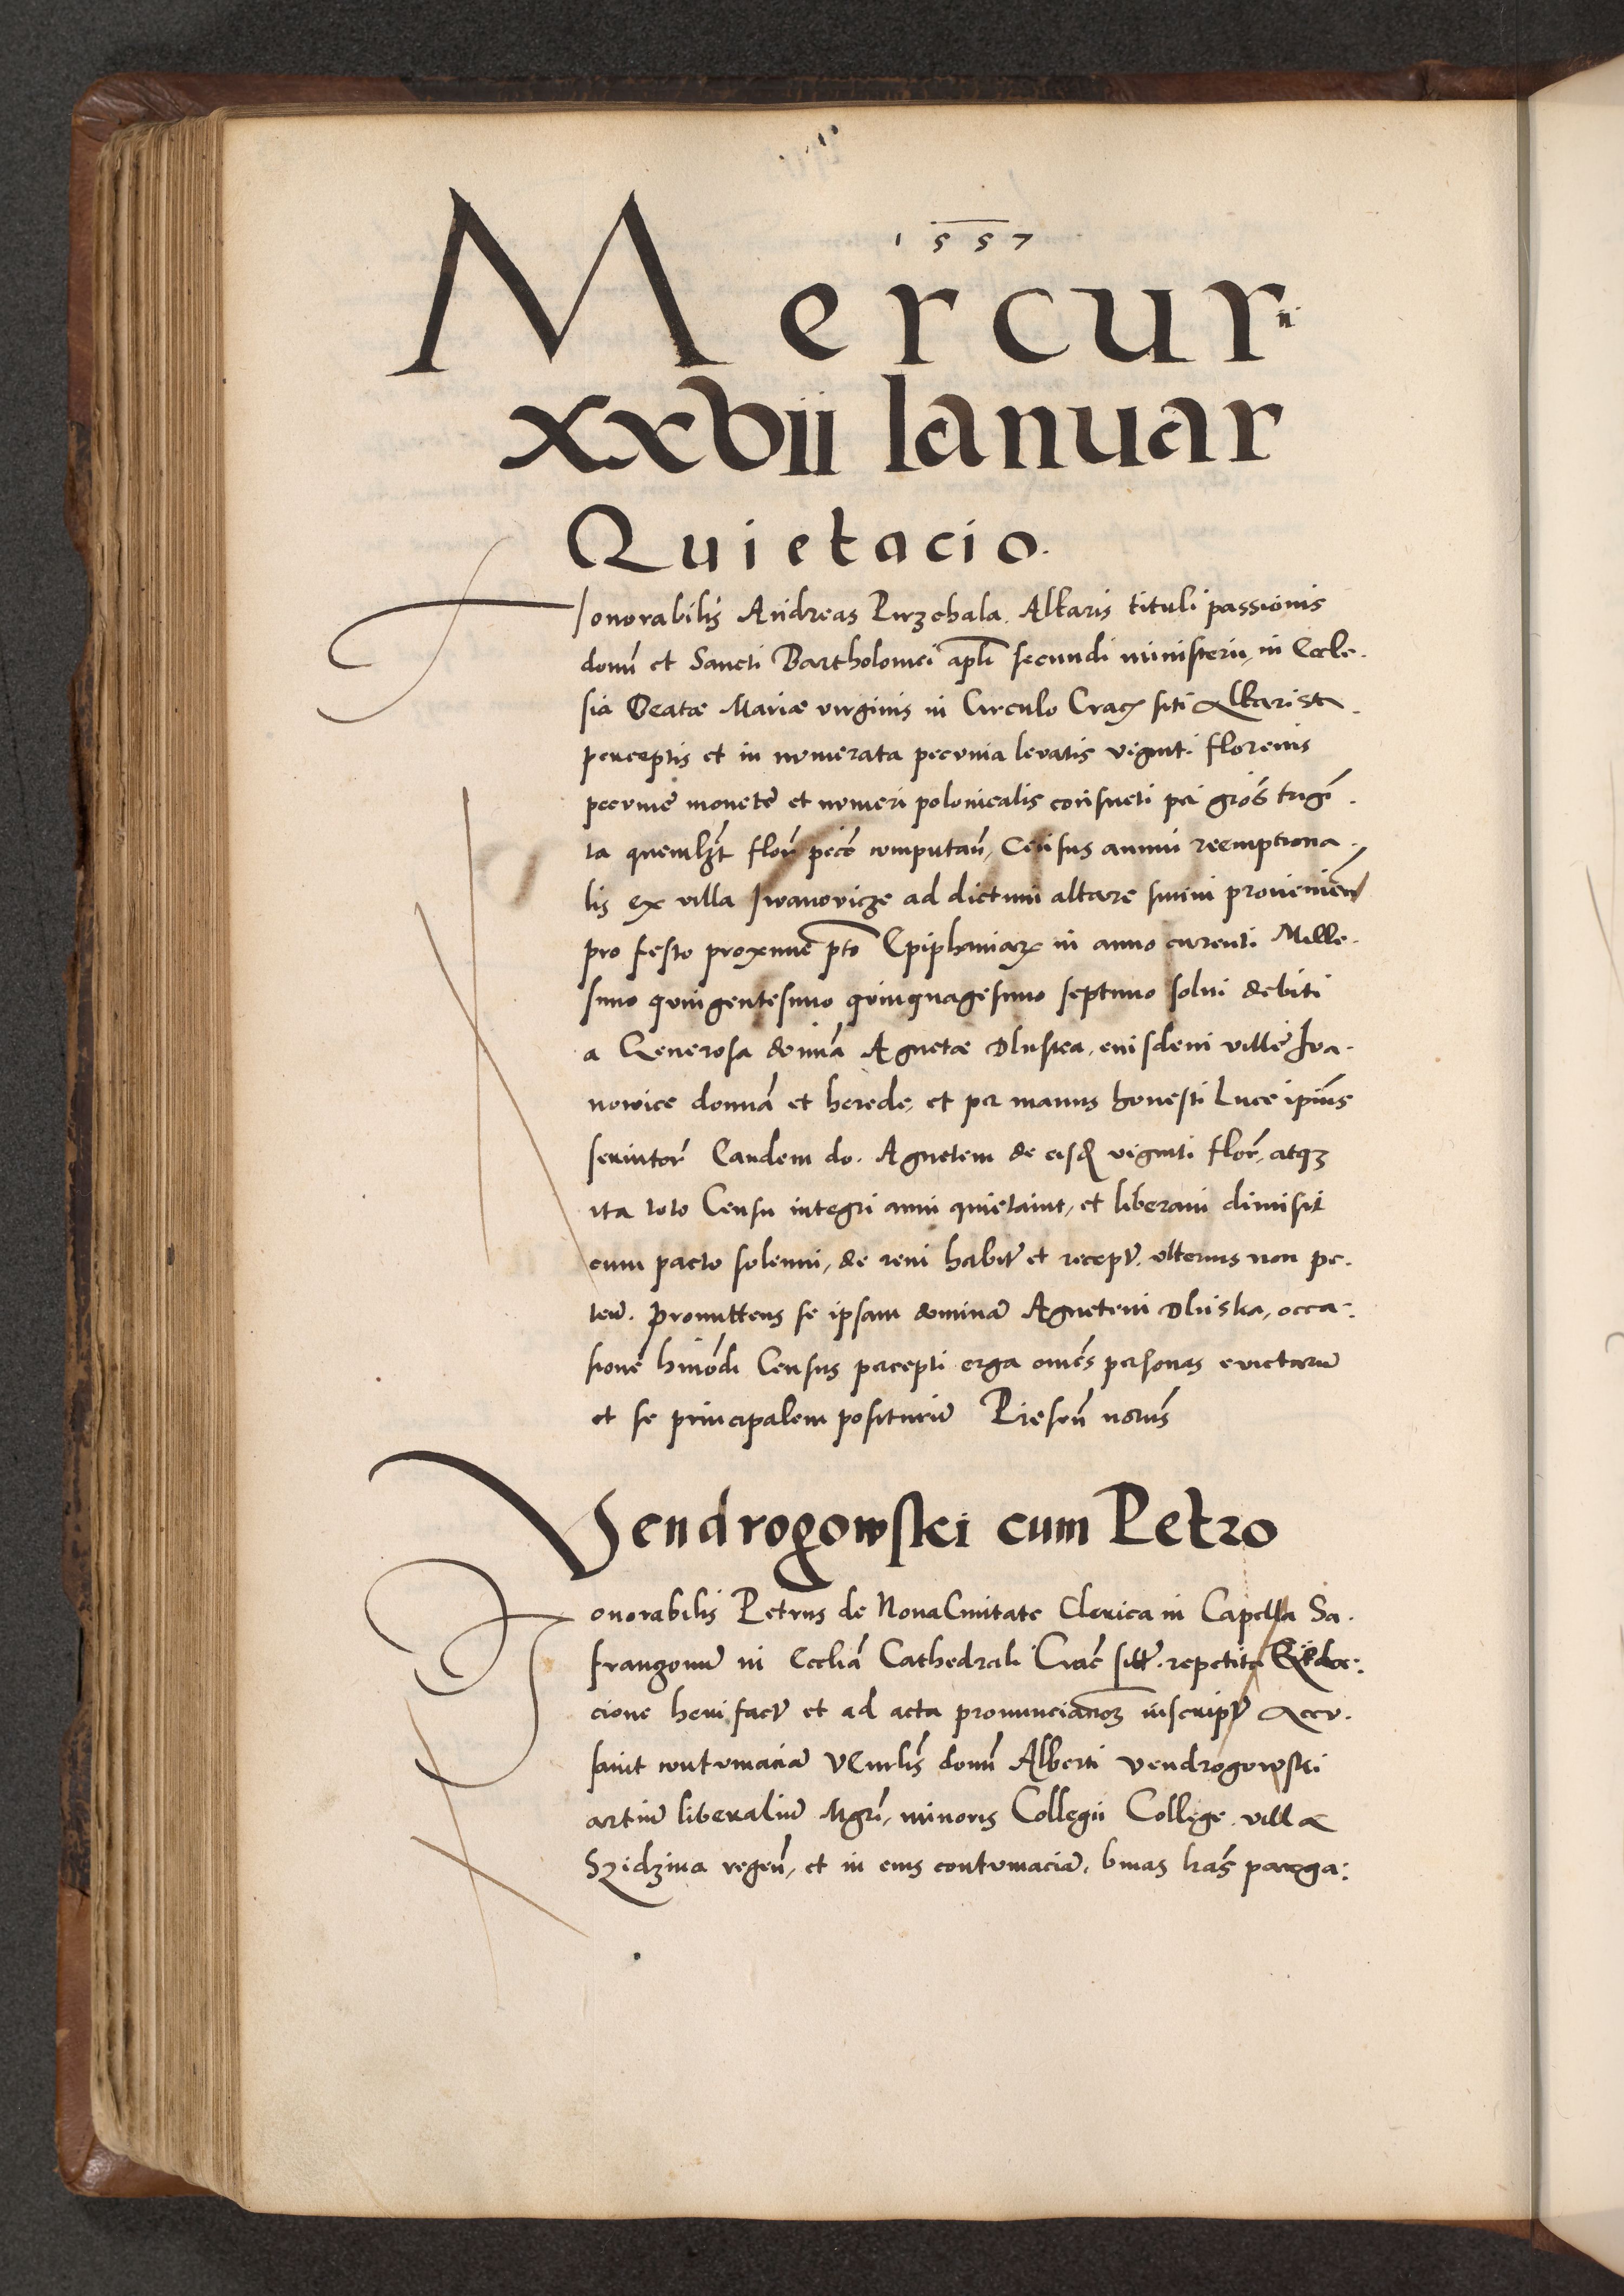 1557
Mercurii
xxvii Ianuar
Quietacio.
Honorabilis Andreas Przechala. Altaris tituli passionis
domi et Sancti Bartholomei apli secundi ministerii, in Eccle.
sia Beatæ Mariæ virginis in Circulo Crac siti Altarista.
perceptis et in numerata pecunia levatis viginti florenis
pecunie monete et numeri polonicalis consueti per gros trigi.
ta quemlzt flor pece computan, Census annui reemptiona.
lis ex villa Iwanovicze ad dictum altare suum provenien
pro festo proxime pto Epiphaniarz in anno curenti Mille.
simo quingentesimo quinquagesimo septimo solui debiti
a Generosa domina Agnetæ Dluska, eiusdem ville Iva.
nowice domina et herede, et per manus honesti Luce ipius
seruitor Eandem do. Agnetem de eisd viginti flor, atqz
ita toto Censu integri anni quietauit, et liberam dimisit
cum pacto solenni, de rem habit et recept. ulterius non pe.
ten. Promittens se ipsam dominam Agnetem Dluska, occa.
sione hmodi Census percepti erga omes personas evictarum
et se principalem positurum Presen noruns
Vendrogowski cum Petro
Honorabilis Petrus de Nova Civitate Clerica in Capella Sa.
frangonum in Ecclia Cathedrali Crac sitt. repetita
cione heri fact et ad acta pronuncianoz inscript Accu.
sauit contumaciam VEnrlis domi Alberti Vendrogowski
artium liberalium Mgri, minoris Collegii College. villæ
Szidzina regen, et in eius contumaciam, bmas has parga: